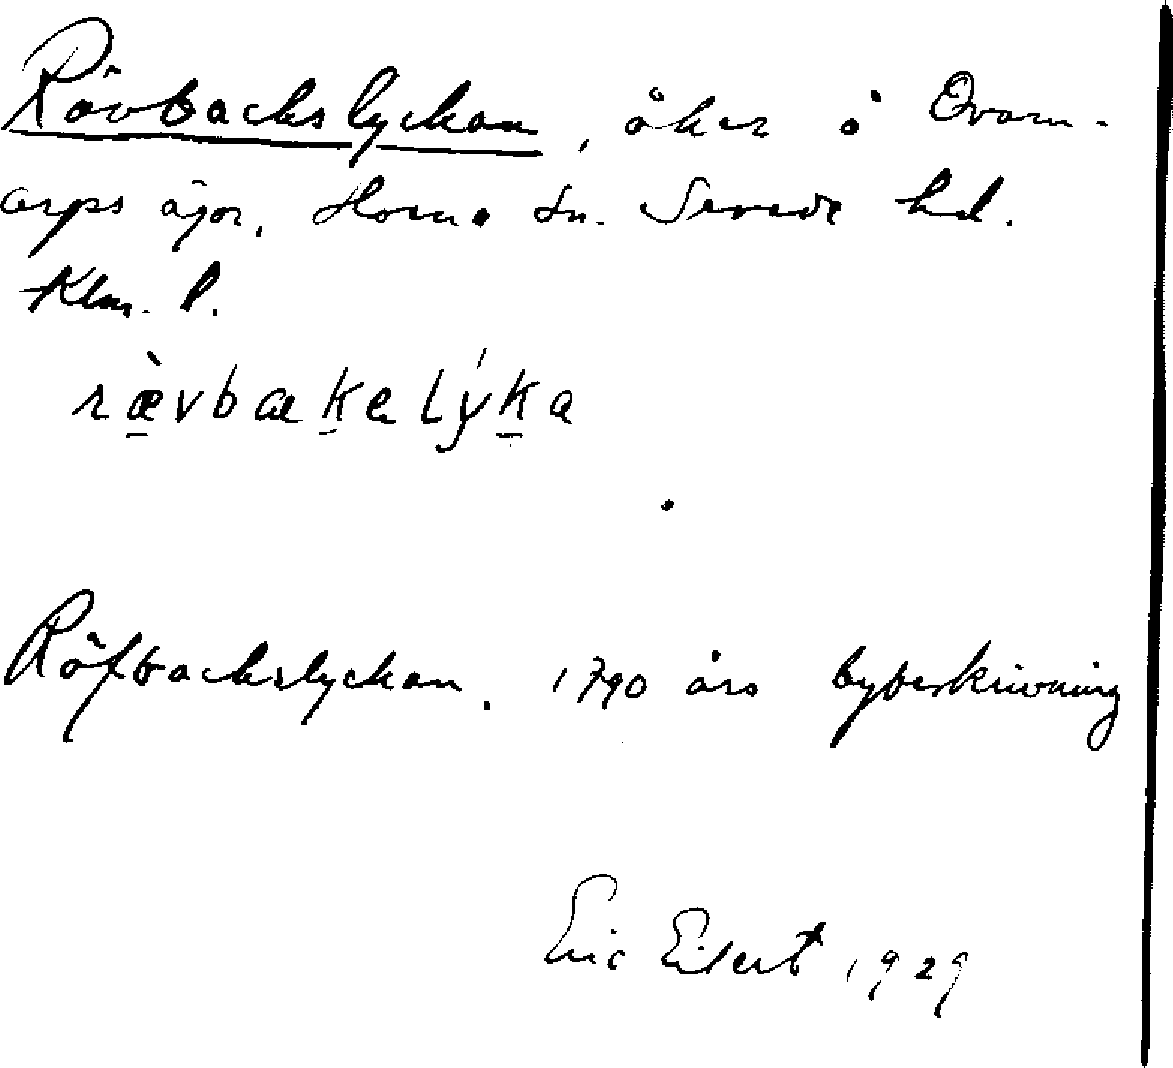 Rävbackslyckan, åker å Ovarn-
arps ägor, Horna sn. Sevede hd.
Klm. l.
rævbakelyka
Räfbackslyckan. 1790 års bybeskrivning
Eric Eilert 1929